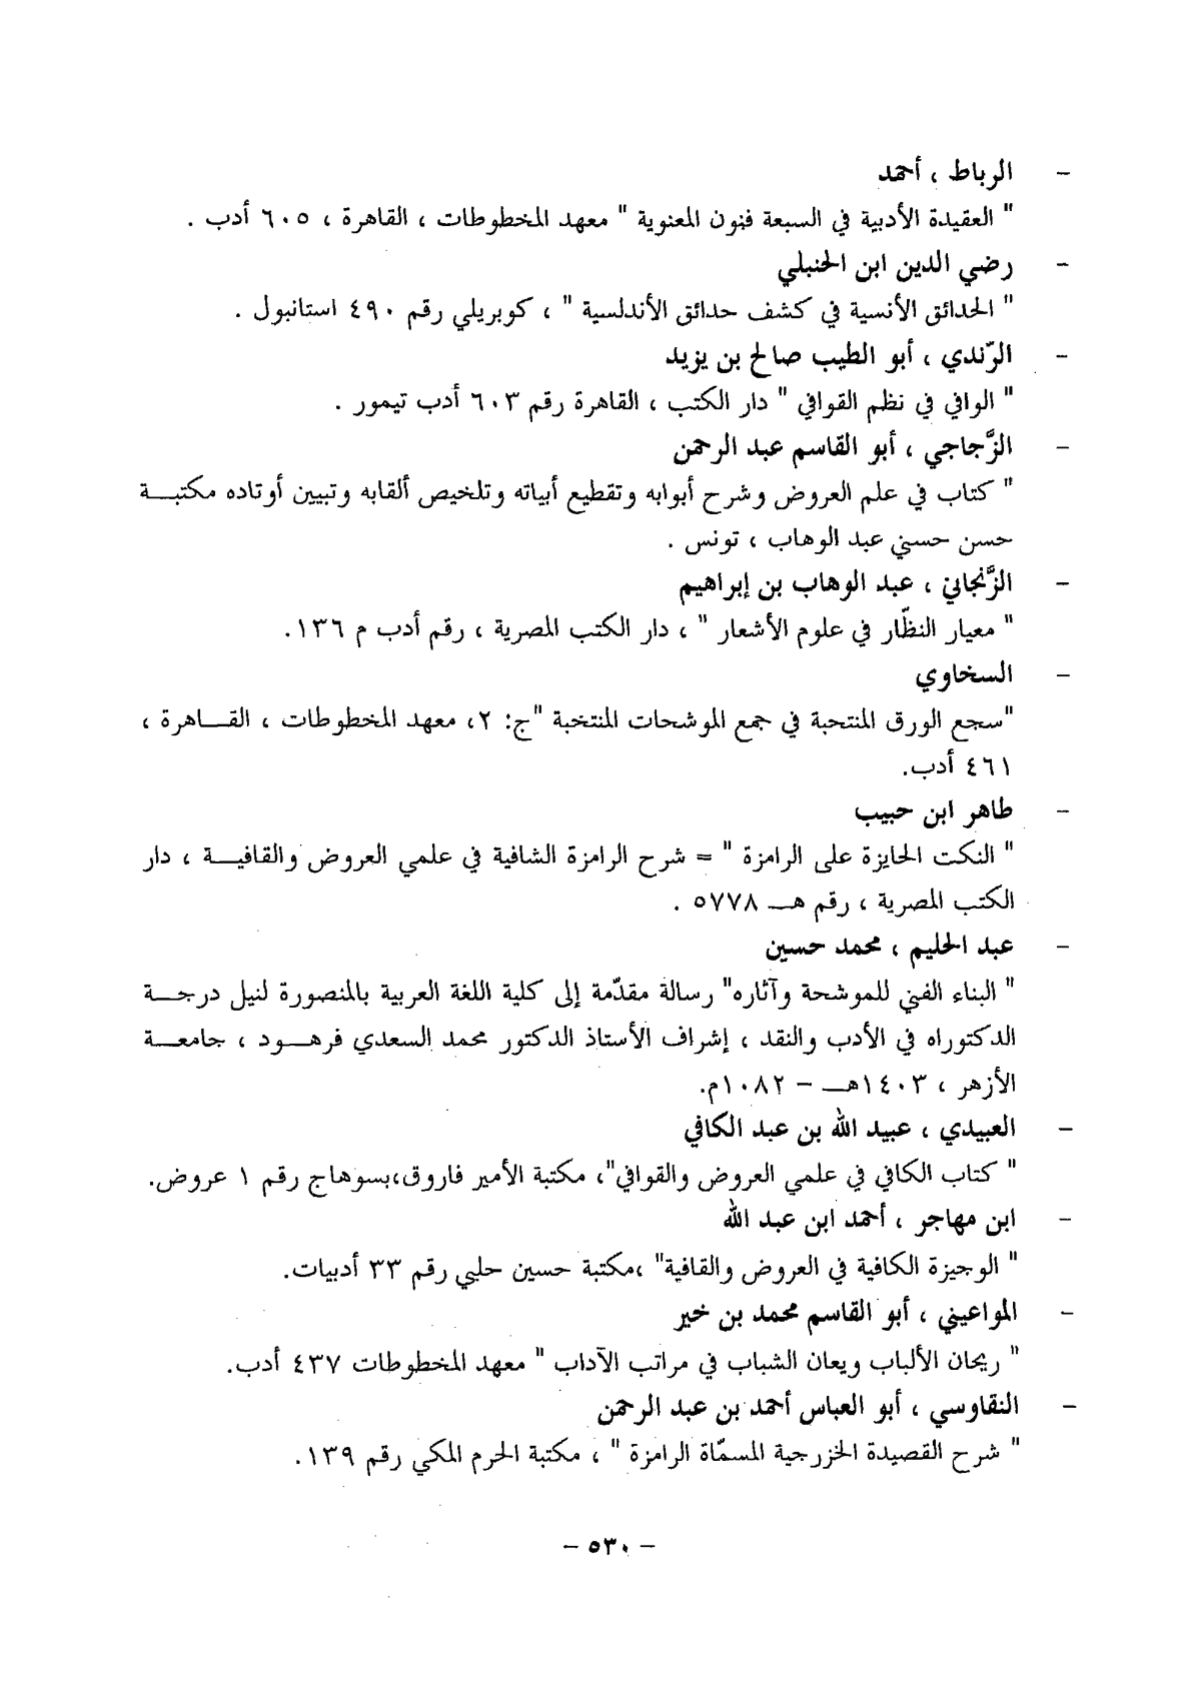 - الرباط ، أحمد
" العقيدة الأدبية في السبعة فنون المعنوية " معهد المخطوطات ، القاهرة ، ٦٠٥ أدب .
- رضي الدين ابن الحنبلي
" الحدائق الأنسية في كشف حدائق الأندلسية " ، كوبريلي رقم ٤٩٠ استانبول .
- الرّندي ، أبو الطيب صالح بن يزيد
" الوافي في نظم القوافي " دار الكتب ، القاهرة رقم ٦٠٣ أدب تيمور .
- الزَّجاجي ، أبو القاسم عبد الرحمن
" كتاب في علم العروض وشرح أبوابه وتقطيع أبياته وتلخيص ألقابه وتبيين أوتاده مكتبــة
حسن حسني عبد الوهاب ، تونس .
- الزَّنجاني ، عبد الوهاب بن إبراهيم
" معيار النظّار في علوم الأشعار " ، دار الكتب المصرية ، رقم أدب م ١٣٦.
- السخاوي
"سجع الورق المنتحبة في جمع الموشحات المنتخبة "ج: ٢، معهد المخطوطات ، القــاهرة ،
٤٦١ أدب.
- طاهر ابن حبيب
" النكت الحايزة على الرامزة " = شرح الرامزة الشافية في علمي العروض والقافيــة ، دار
الكتب المصرية ، رقم هــ ٥٧٧٨ .
- عبد الحليم ، محمد حسين
" البناء الفني للموشحة وآثاره" رسالة مقدّمة إلى كلية اللغة العربية بالمنصورة لنيل درجــة
الدكتوراه في الأدب والنقد ، إشراف الأستاذ الدكتور محمد السعدي فرهــود ، جامعــة
الأزهر ، ١٤٠٣هــ - ١٠٨٢م.
- العبيدي ، عبيد الله بن عبد الكافي
" كتاب الكافي في علمي العروض والقوافي"، مكتبة الأمير فاروق،بسوهاج رقم ١ عروض.
- ابن مهاجر ، أحمد ابن عبد الله
" الوجيزة الكافية في العروض والقافية" ،مكتبة حسين حلبي رقم ٣٣ أدبيات.
- المواعيني ، أبو القاسم محمد بن خير
" ريحان الألباب ويعان الشباب في مراتب الآداب " معهد المخطوطات ٤٣٧ أدب.
- النقاوسي ، أبو العباس أحمد بن عبد الرحمن
" شرح القصيدة الخزرجية المسمّاة الرامزة " ، مكتبة الحرم المكي رقم ١٣٩.
- ٥٣٠ -